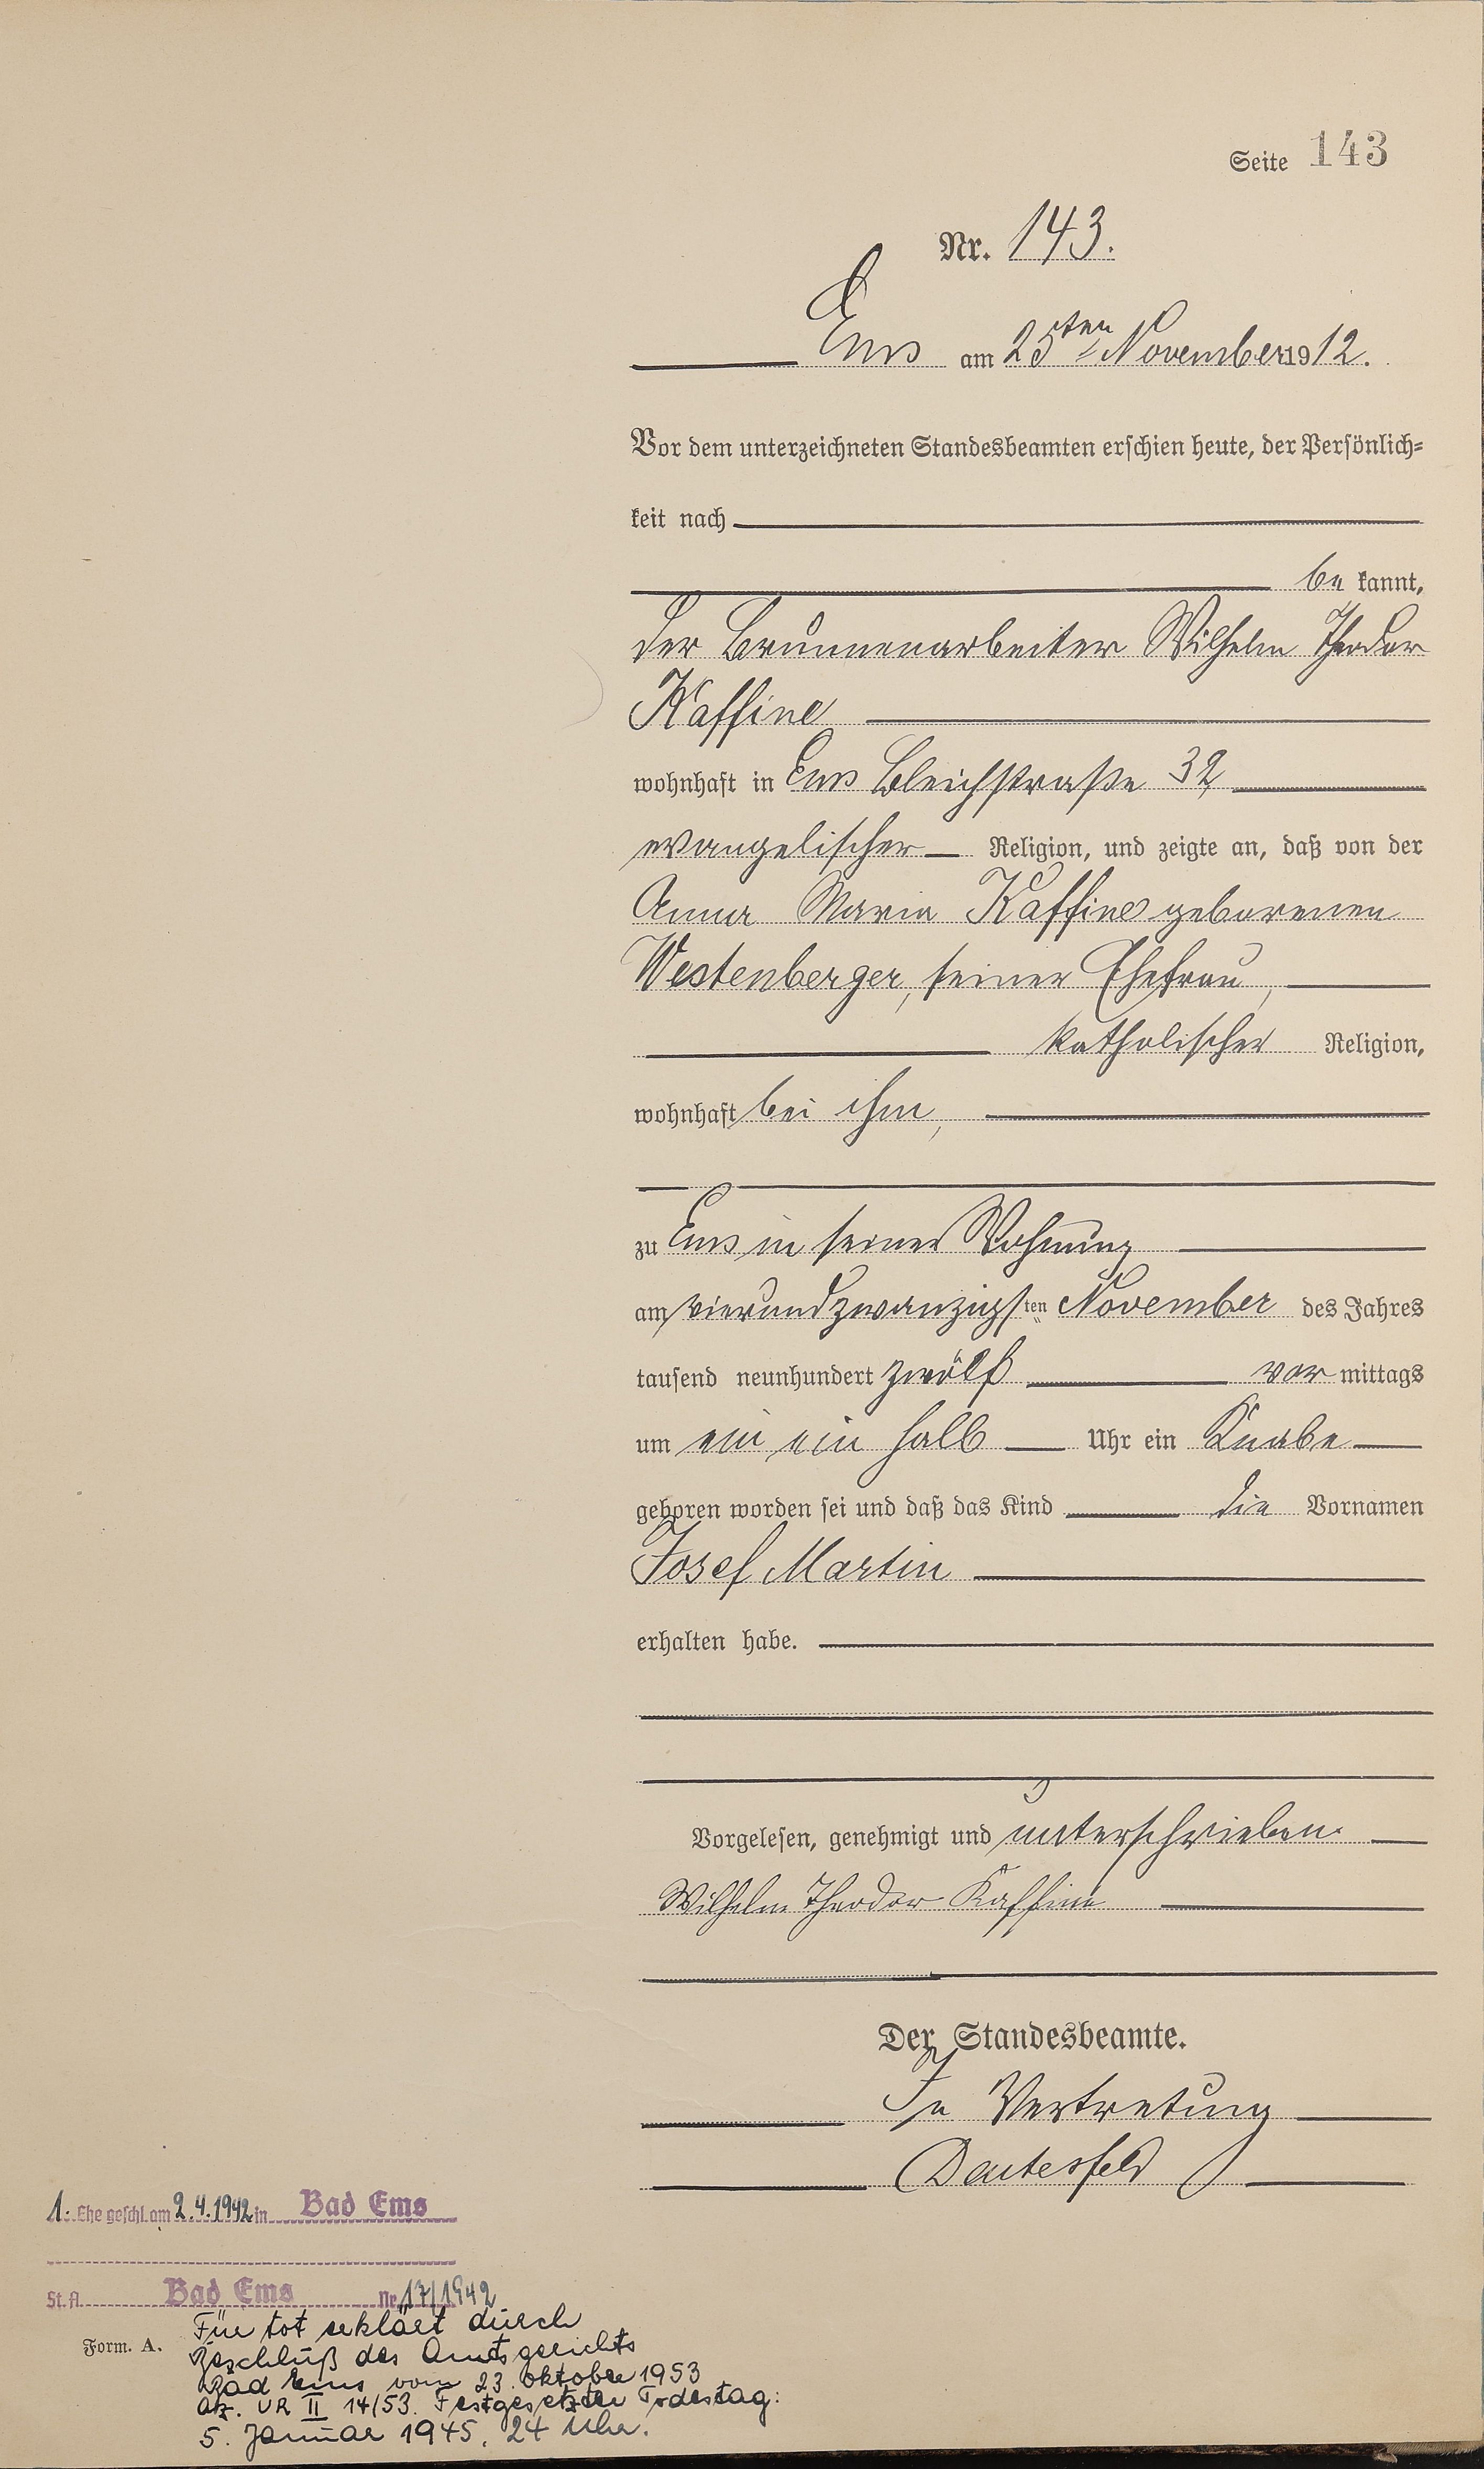 Seite 143
Nr. 143.
Ems am 25ten November 1912.
Vor dem unterzeichneten Standesbeamten erschien heute, der Persönlich=
keit nach
be kannt,
der Brunnenarbeiter Wilhelm Theodor
Kaffine
wohnhaft in Ems Bleichstraße 32
evangelischer Religion, und zeigte an, daß von der
Anna Maria Kaffine geborenen
Westenberger, seiner Ehefrau,
katholischer Religion,
wohnhaft bei ihm,
zu Ems in seiner Wohnung
am vierundzwanzigsten November des Jahres
tausend neunhundert zwölf vor mittags
um ein ein halb Uhr ein Knabe
geboren worden sei und daß das Kind die Vornamen
Josef Martin
erhalten habe.
Vorgelesen, genehmigt und unterschrieben.
Wilhelm Theodor Kaffine
Der Standesbeamte.
In Vertretung
1. Ehe geschl. am 2.4.1942 in Bad Ems
St. A. Bad Ems Nr. 17/1942
Form. A.
Für tot erklärt durch
Beschluß des Amtsgerichts
Bad Ems vom 23. Oktober 1953
Akz. UR II 14/53. Festgesetzter Todestag:
5. Januar 1945, 24 Uhr.